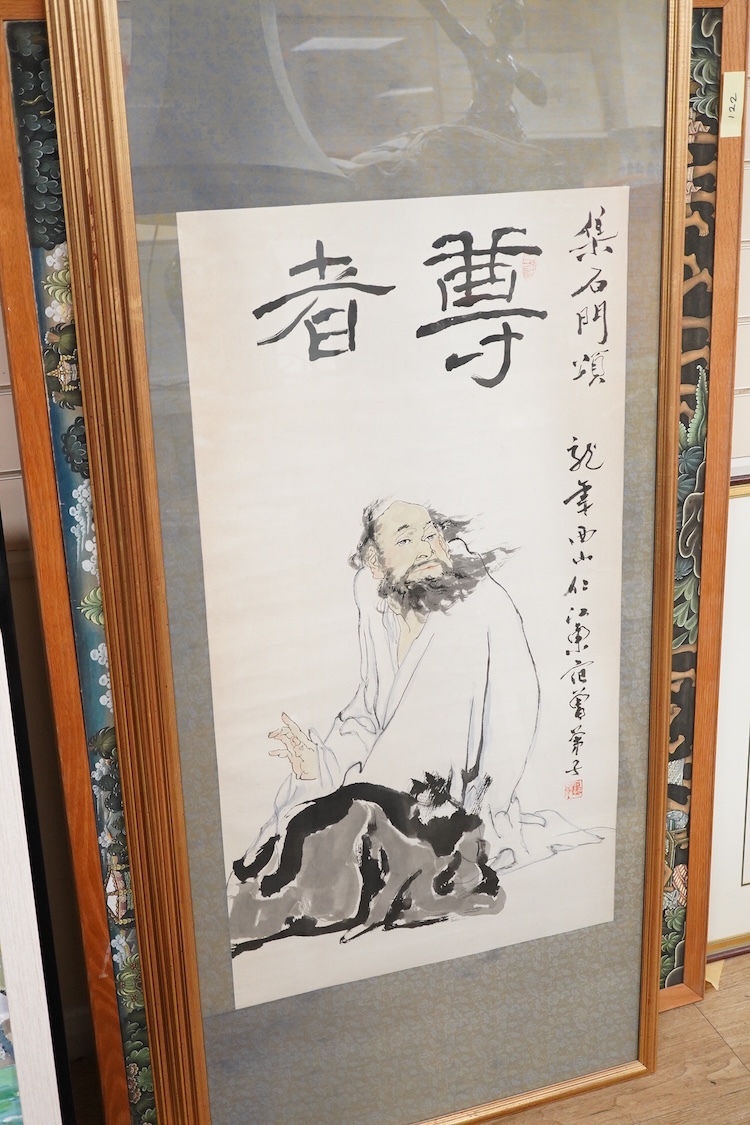 集石門頌
龍年西山仁江東范曾弟子
尊者
122